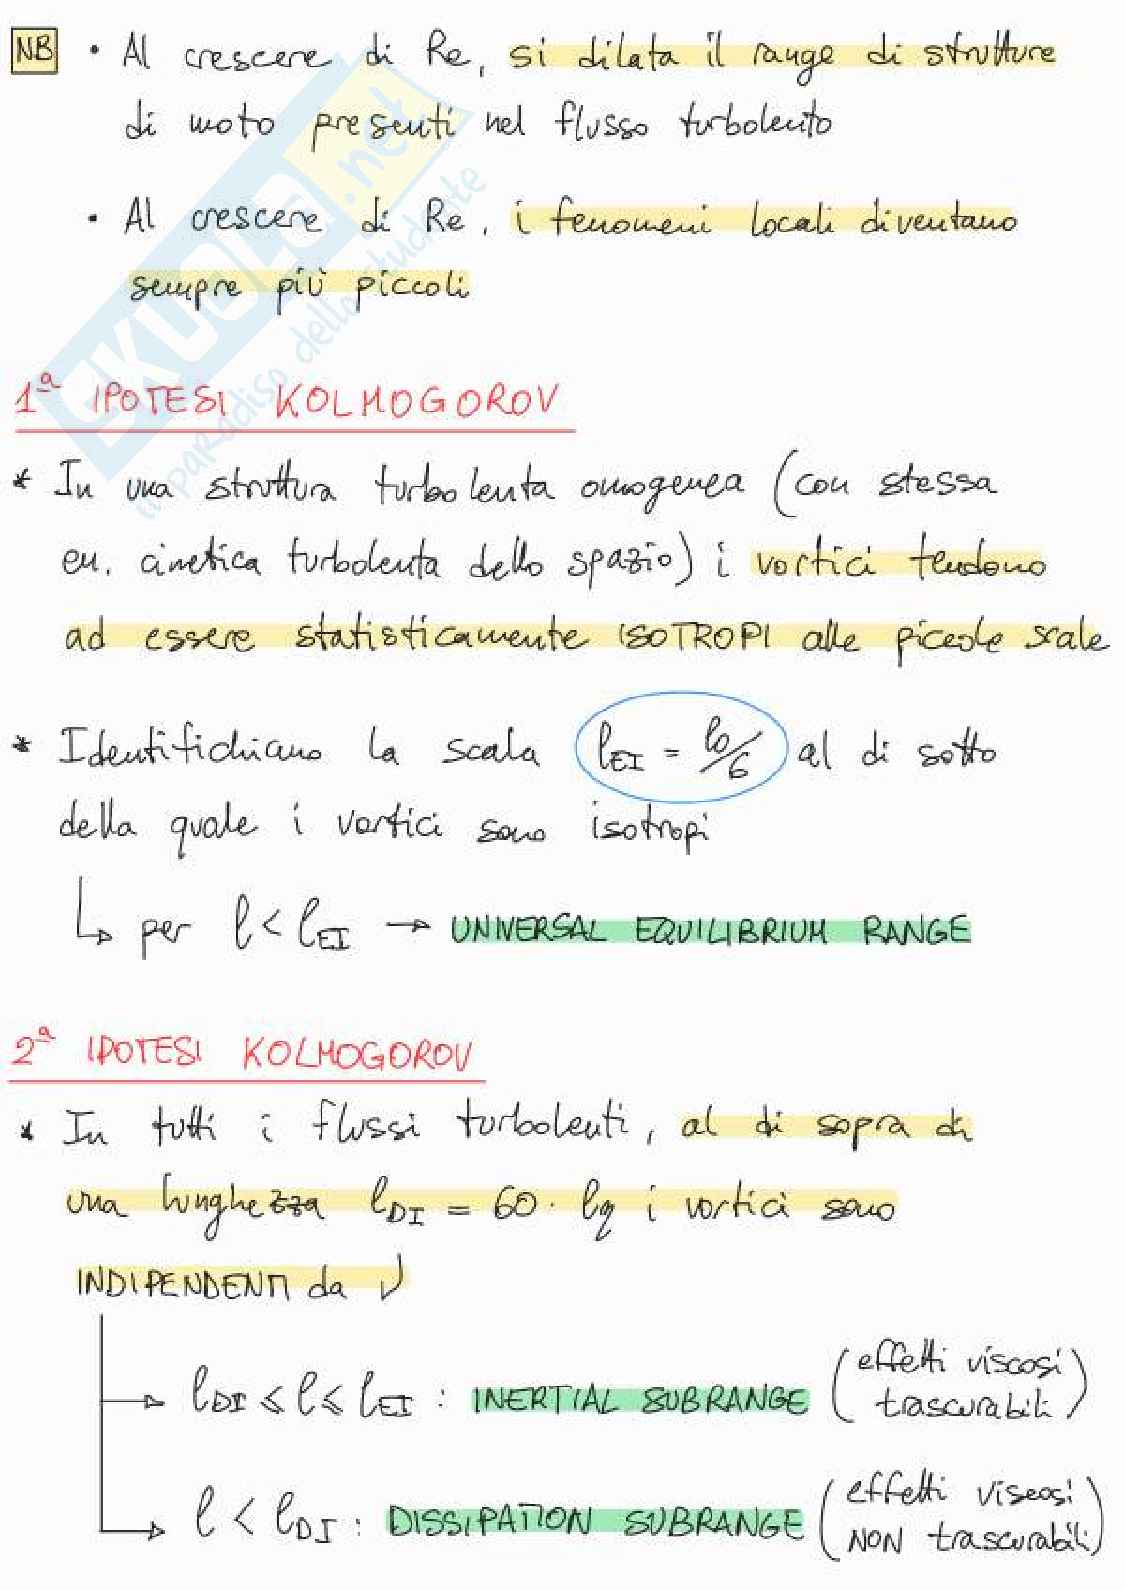 NB • Al crescere di Re, si dilata il range di strutture
di moto presenti nel flusso turbolento
• Al crescere di Re, i fenomeni locali diventano
sempre più piccoli
SKUOLA.net
il paradiso dello studente
1ª IPOTESI KOLMOGOROV
* In una struttura turbolenta omogenea (con stessa
en. cinetica turbolenta dello spazio) i vortici tendono
ad essere statisticamente ISOTROPI alle piccole scale
* Identifichiamo la scala lEI = l0/6 al di sotto
della quale i vortici sono isotropi
↳ per l < lEI → UNIVERSAL EQUILIBRIUM RANGE
2ª IPOTESI KOLMOGOROV
* In tutti i flussi turbolenti, al di sopra di
una lunghezza lDI = 60 · lη i vortici sono
INDIPENDENTI da ν
→ lDI ≤ l ≤ lEI : INERTIAL SUBRANGE (effetti viscosi trascurabili)
→ l < lDI : DISSIPATION SUBRANGE (effetti viscosi NON trascurabili)